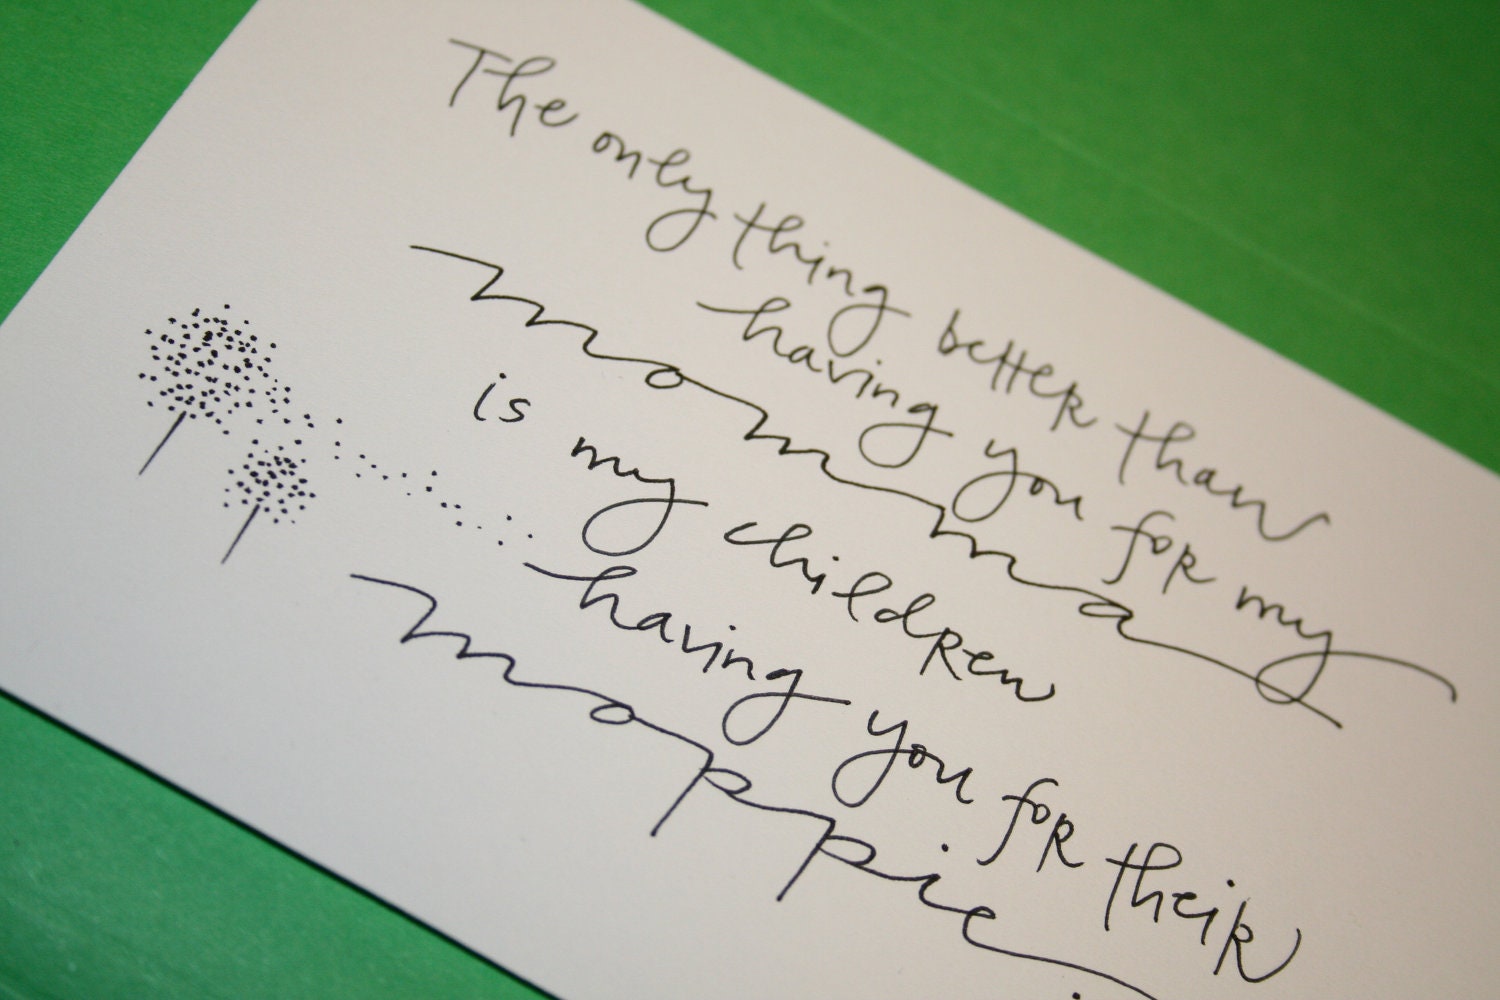 The only thing better than
having you for my
momma
is my children
having you for their
moppie